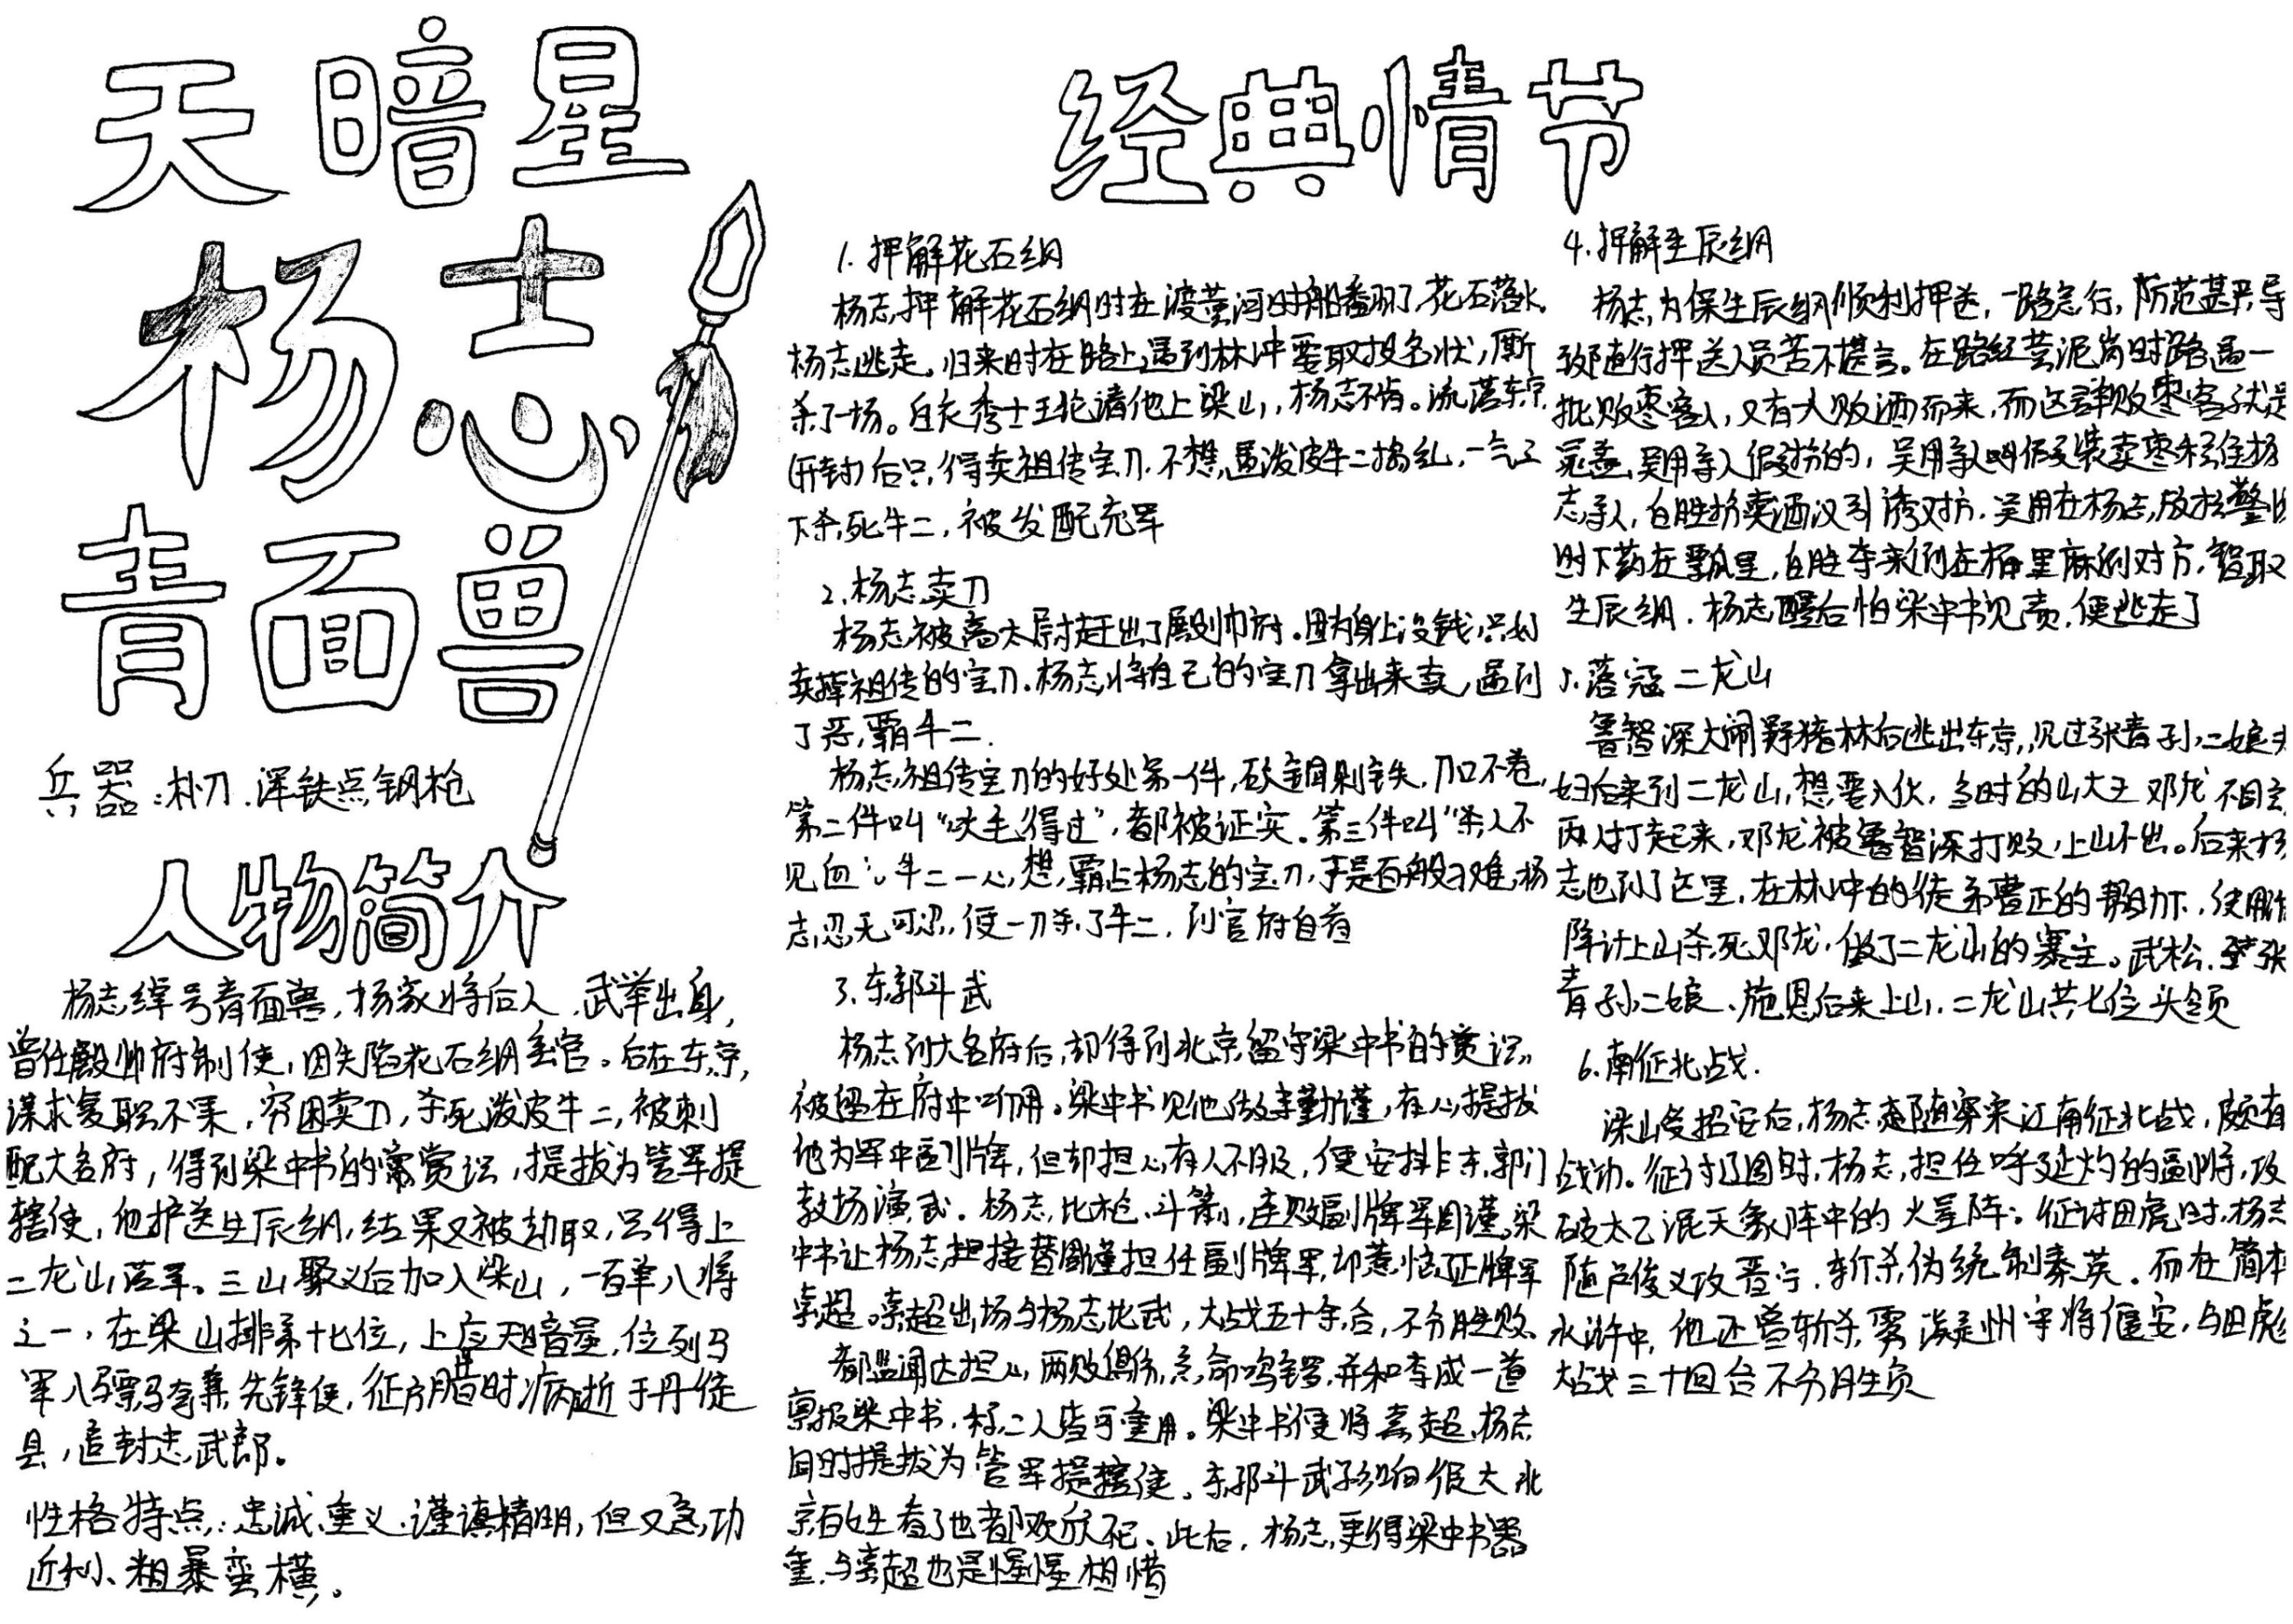 天暗星
杨志
青面兽
兵器:朴刀.浑铁点钢枪
人物简介
杨志,绰号青面兽,杨家将后人,武举出身,
曾任殿帅府制使,因失陷花石纲丢官。后在东京,
谋求复职不果,穷困卖刀,杀死泼皮牛二,被刺
配大名府,得到梁中书的赏识,提拔为管军提
辖使,他护送生辰纲,结果又被劫取,只得上
二龙山落草。三山聚义后加入梁山,一百单八将
之一,在梁山排第十七位,上应天暗星,位列马
军八骠骑兼先锋使,征方腊时病逝于丹徒
县,追封忠武郎。
性格特点:忠诚、重义、谨慎精明,但又急功
近利、粗暴蛮横。
经典情节
1.押解花石纲
杨志押解花石纲时在渡黄河时船翻了,花石落水
杨志逃走。归来时在路上遇到林冲要取投名状,厮
杀了一场。白衣秀士王伦请他上梁山,杨志不肯。流落东京
(开封)后只得卖祖传宝刀.不想遇泼皮牛二捣乱,一气之
下杀死牛二,被发配充军
2.杨志卖刀
杨志被高太尉赶出了殿帅府。因为身上没钱,只好
卖掉祖传的宝刀.杨志将自己的宝刀拿出来卖,遇到
了恶霸牛二.
杨志祖传宝刀的好处第一件,砍铜剁铁,刀口不卷,
第二件叫“吹毛得过”,都被证实。第三件叫“杀人不
见血”,牛二一心想霸占杨志的宝刀,于是百般刁难,杨
志忍无可忍,便一刀杀了牛二,到官府自首
3.东郭斗武
杨志到大名府后,却得到北京留守梁中书的赏识,
被留在府中听用。梁中书见他做事勤谨,有心提拔
他为军中副牌,但却担心有人不服,便安排上东郭门
教场演武.杨志比枪、斗箭,连败副牌军周谨,梁
中书让杨志接替周谨担任副牌军,却惹恼正牌军
索超。索超出场与杨志比武,大战五十余合,不分胜败、
都监闻达担心两败俱伤,急命鸣锣,并和李成一道
禀报梁中书,称二人皆可重用。梁中书便将索超、杨志
同时提拔为管军提辖使。东郭斗武影响很大北
京百姓看了也都欢欣不已、此后,杨志更得梁中书器
重,与索超也是惺惺相惜
4.押解生辰纲
杨志为保生辰纲顺利押送,一路急行,防范甚严,导
致随行押送人员苦不堪言。在路经黄泥岗时路遇一
批贩枣客人,又有人贩酒而来,而这群贩枣客就是
晁盖、吴用等人假扮的,吴用等人叫假装卖枣稳住杨
志等人,白胜扮卖酒汉引诱对方.吴用在杨志放松警惕
时下药在瓢里,白胜夺来倒在桶里麻倒对方,智取
生辰纲.杨志醒后怕梁中书见责,便逃走了
5.落寇二龙山
鲁智深大闹野猪林后逃出东京,见过张青孙二娘夫
妇后来到二龙山,想要入伙,当时的山大王邓龙不同意
两人打起来,邓龙被鲁智深打败,上山不出。后来杨
志也到了这里,在林冲的徒弟曹正的帮助下,使用诈
降计上山杀死邓龙,做了二龙山的寨主。武松、张
青孙二娘、施恩后来上山,二龙山共七位头领
6.南征北战.
梁山受招安后,杨志随宋江南征北战,颇有
战功。征讨辽国时,杨志担任呼延灼的副将,攻
破太乙混天象阵中的火星阵;征讨田虎时,杨志
随卢俊义攻晋宁,斩杀伪统制秦英。而在简本
水浒中,他还曾斩杀是州守将偃安,与田彪
大战三十回合不分胜负